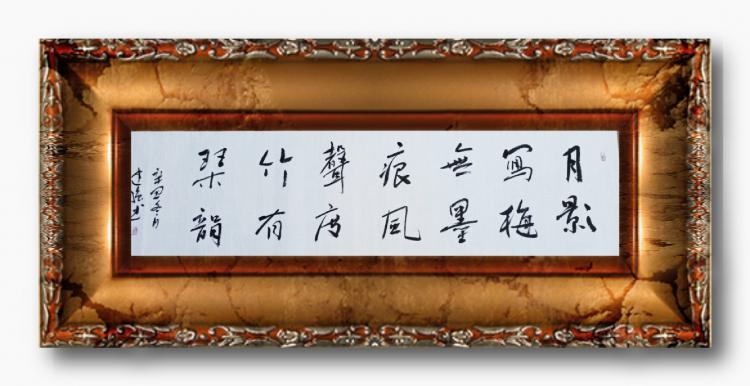 月影
寫梅
無墨
痕風
聲度
竹有
琴韻
辛丑冬月